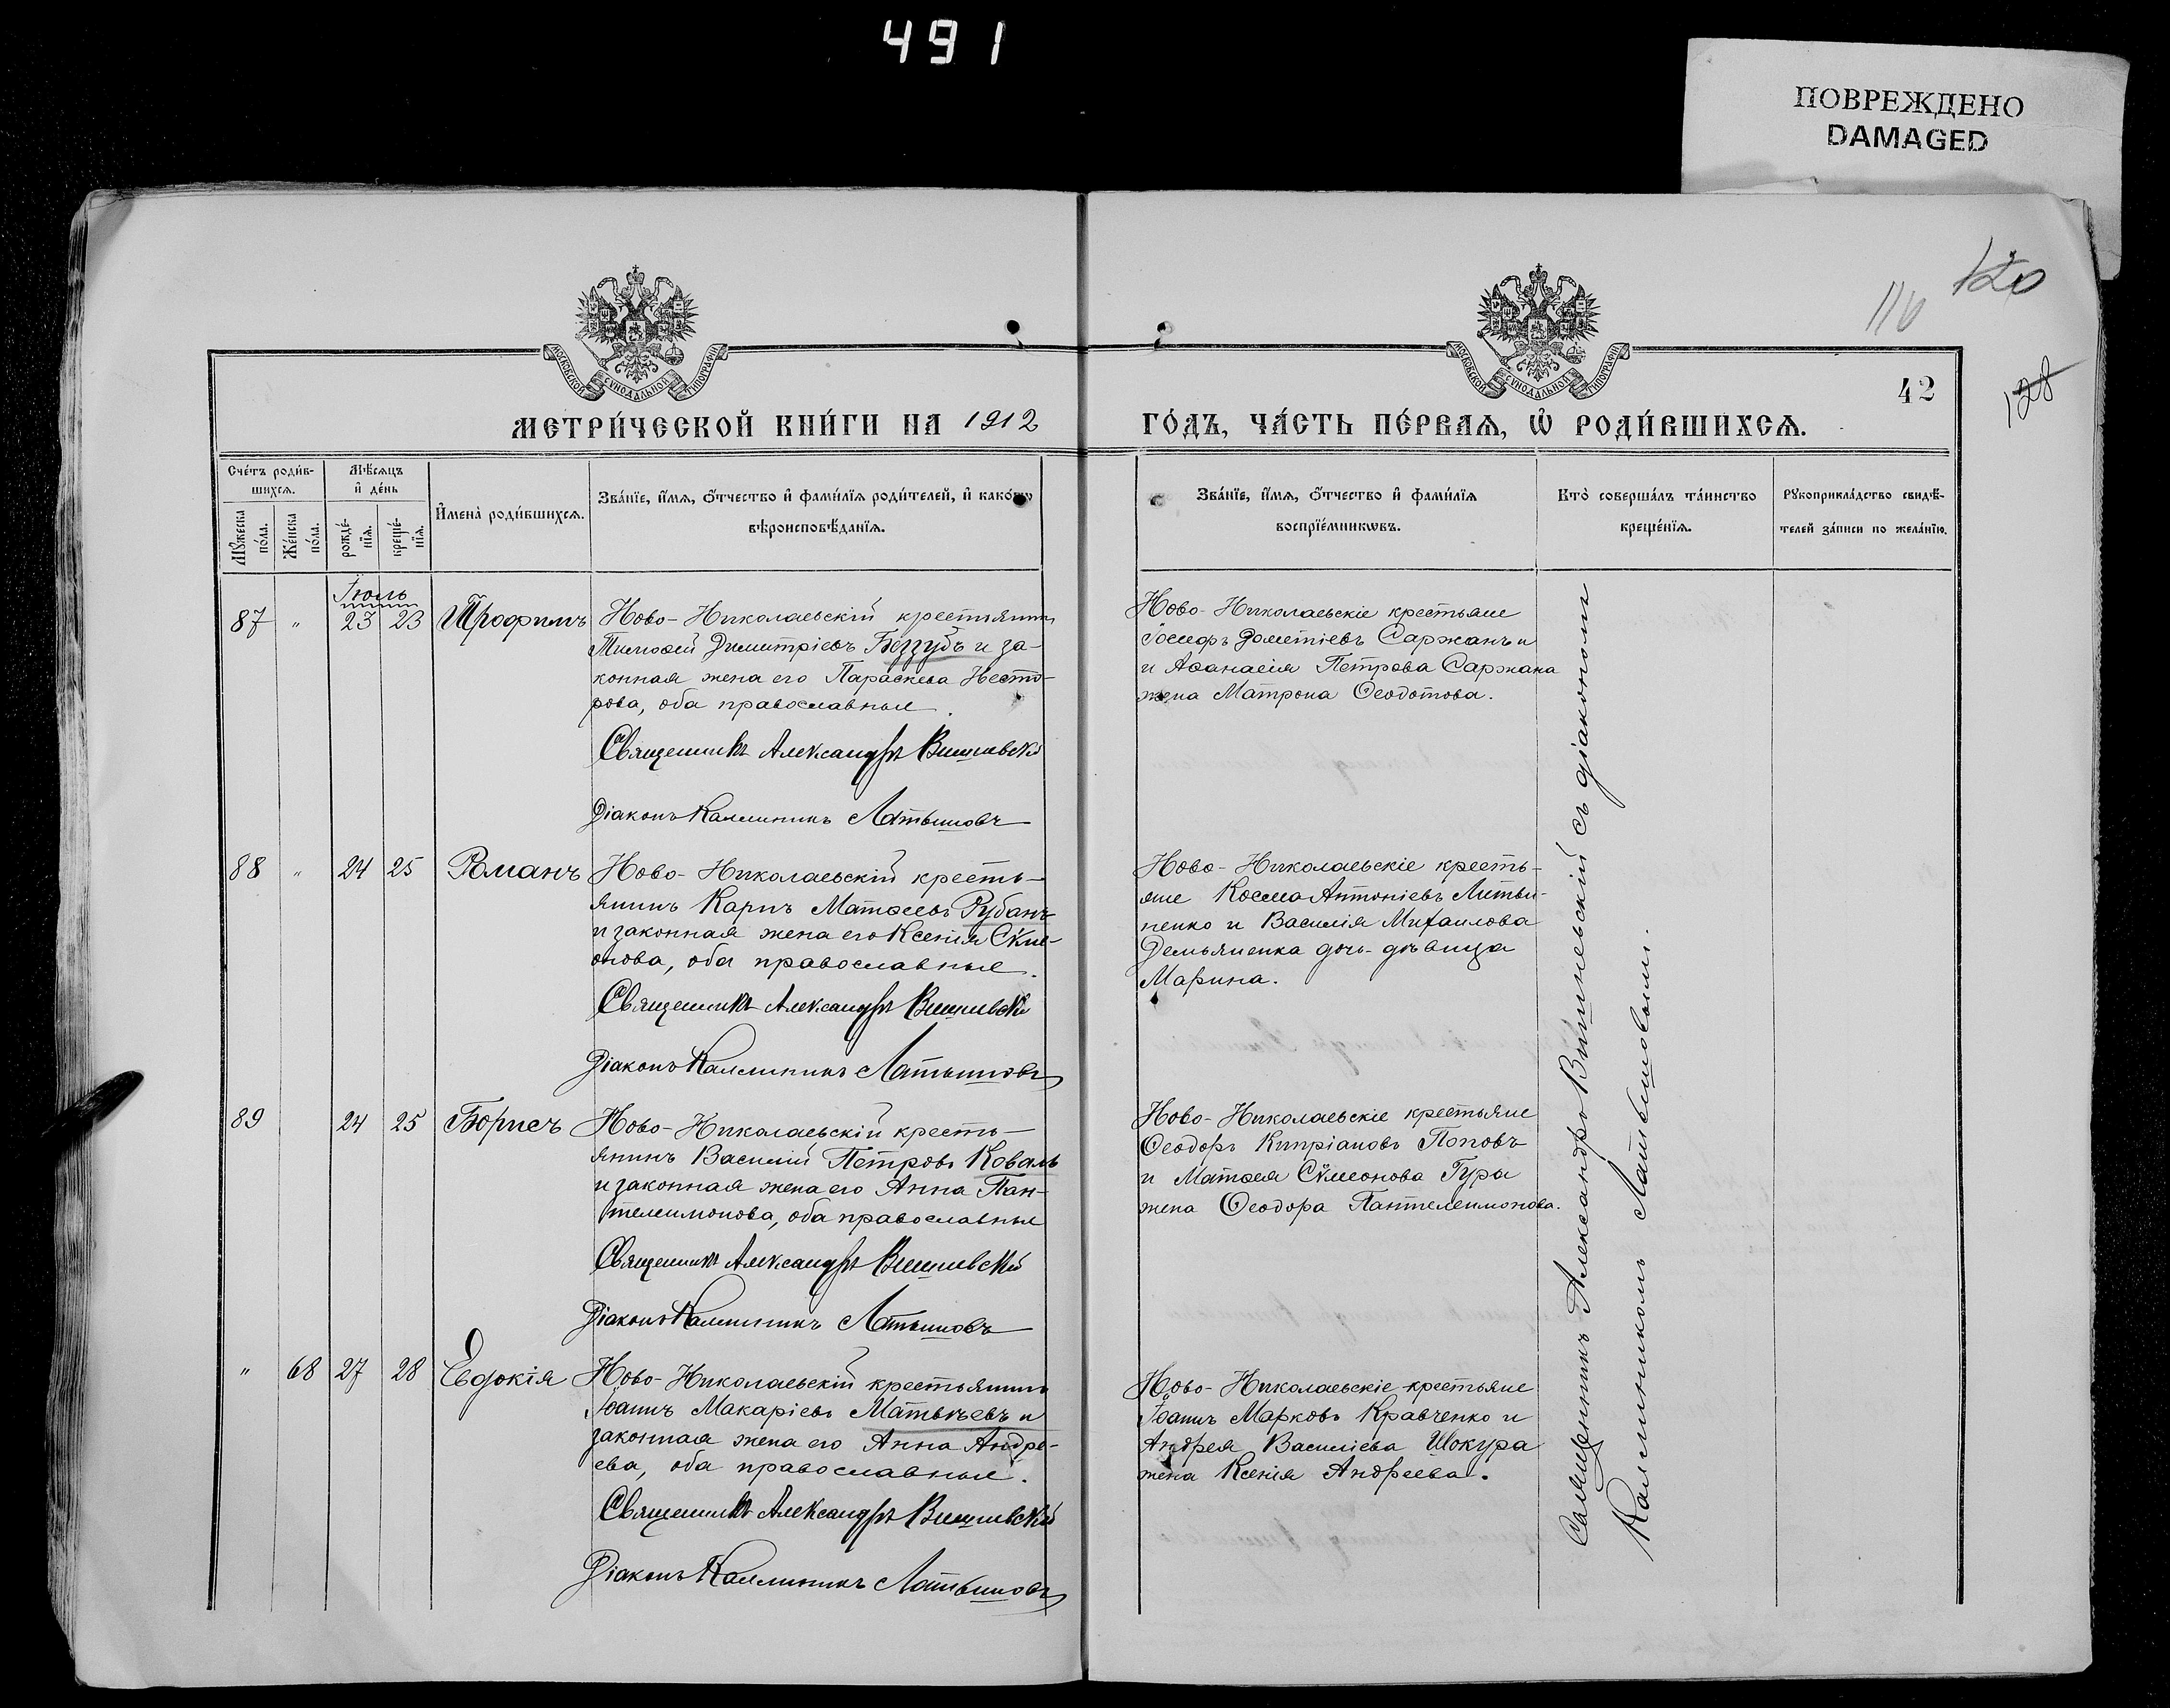 491
ПОВРЕЖДЕНО
DAMAGED
120
116
128
42
МОСКОВСКОЙ СѴНОДАЛЬНОЙ ТИПОГРАФІИ
МОСКОВСКОЙ СѴНОДАЛЬНОЙ ТИПОГРАФІИ
МЕТРИ́ЧЕСКОЙ КНИ́ГИ НА 1912
ГО́ДЪ, ЧА́СТЬ ПЕ́РВАѦ, Ѡ҆ РОДИ́ВШИХСѦ.
Сче́тъ роди́в-
шихсѧ.
Мꙋ́жеска
по́ла.
Же́нска
по́ла.
Мѣ́сѧцъ
и҆ де́нь
рожде́-
нїѧ.
креще́-
нїѧ.
И҆мена̀ роди́вшихсѧ.
Зва́нїе, и҆́мѧ, ѻ҆́тчество и҆ фами́лїѧ роди́телей, и҆ како́гѡ
вѣроисповѣ́данїѧ.
Зва́нїе, и҆́мѧ, ѻ҆́тчество и҆ фами́лїѧ
воспрїе́мникѡвъ.
Кто̀ соверша́лъ та́инство
креще́нїѧ.
Рꙋкоприкла́дство свидѣ́-
телей за́писи по жела́нїю.
Іюль
87 " 23 23 Трофимъ
Ново-Николаевскій крестьянинъ
Тимоѳей Димитріевъ Беззубъ и за-
конная жена его Параскева Несто-
рова, оба православные.
Священникъ Александръ Вишневскій
Діаконъ Каллиникъ Латышовъ
Ново-Николаевскіе крестьяне
Іосифъ Дометіевъ Саржанъ и
и Аѳанасія Петрова Саржана
жена Матрона Ѳеодотова.
88 " 24 25 Романъ
Ново-Николаевскій кресть-
янинъ Карпъ Матѳеевъ Рубанъ
и законная жена его Ксенія Сѵме-
онова, оба православные.
Священникъ Александръ Вишневскій
Діаконъ Каллиникъ Латышовъ
Ново-Николаевскіе кресть-
яне Косма Антоніевъ Литви-
ненко и Василія Михаилова
Демьяненка дочь-дѣвица
Марина.
89 24 25 Борисъ
Ново-Николаевскій кресть-
янинъ Василій Петровъ Коваль
и законная жена его Анна Пан-
телеимонова, оба православные
Священникъ Александръ Вишневскій
Діаконъ Каллиникъ Латышовъ
Ново-Николаевскіе крестьяне
Ѳеодоръ Кипріановъ Поповъ
и Матѳея Сѵмеонова Гуры
жена Ѳеодора Пантелеимонова.
" 68 27 28 Евдокія
Ново-Николаевскій крестьянинъ
Іоаннъ Макаріевъ Матвѣевъ и
законная жена его Анна Андре-
ева, оба православные.
Священникъ Александръ Вишневскій
Діаконъ Каллиникъ Латышовъ
Ново-Николаевскіе крестьяне
Іоаннъ Марковъ Кравченко и
Андрея Василіева Шокура
жена Ксенія Андреева.
Священникъ Александръ Вишневскій съ діакономъ
Каллиникомъ Латышовымъ.